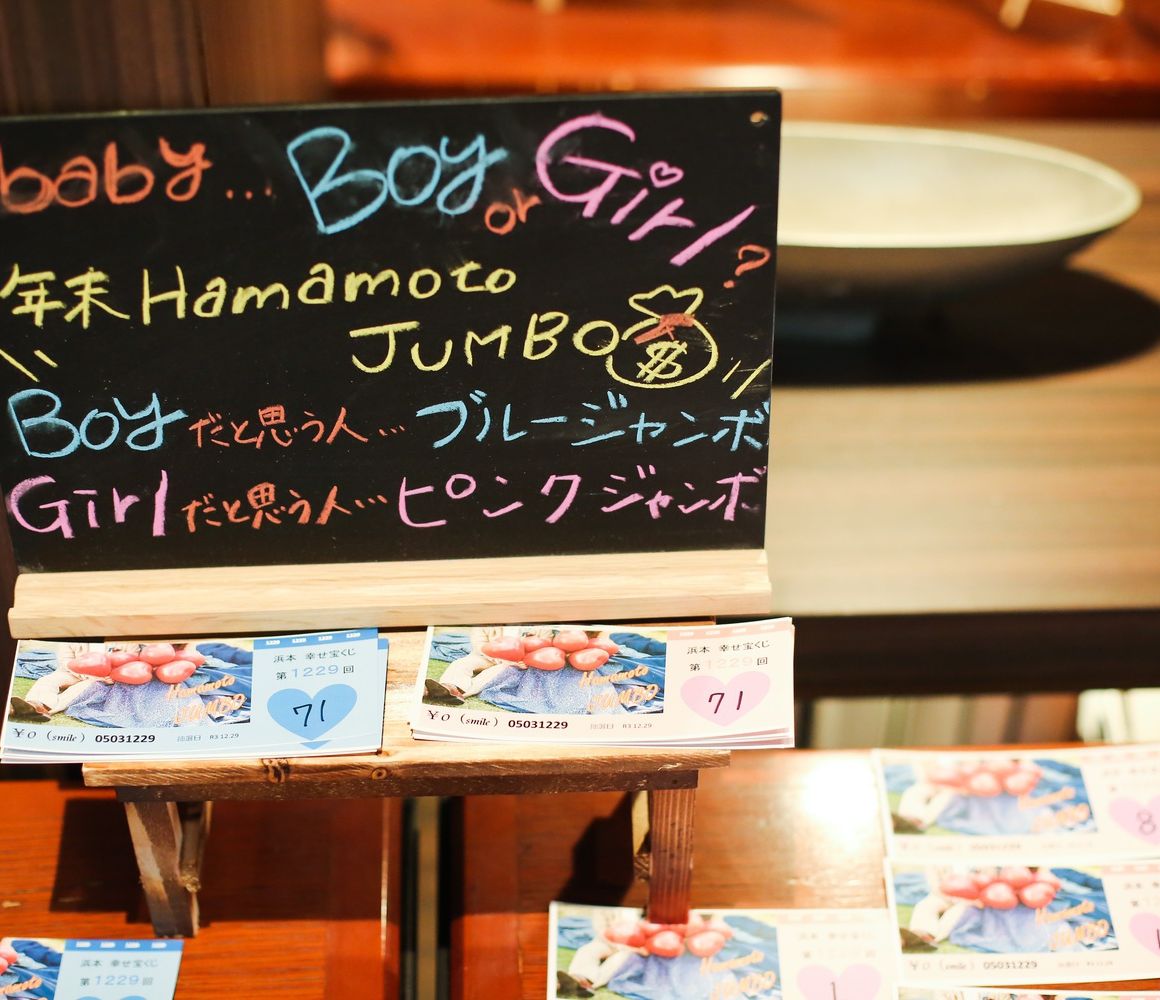 baby... Boy or Girl?
年末 Hamamoto
JUMBO $
Boyだと思う人… ブルージャンボ
Girlだと思う人… ピンクジャンボ
浜本 幸せ宝くじ
第1229回
Hamamoto
JUMBO
71
¥0 (smile) 05031229 抽選日 R3.12.29
浜本 幸せ宝くじ
第1229回
Hamamoto
JUMBO
71
¥0 (smile) 05031229 抽選日 R3.12.29
Hamamoto
JUMBO
8
浜本
Hamamoto
JUMBO
¥0 (smile) 05031229
浜本 幸せ宝くじ
第1229回
Hamamoto
JUMBO
1